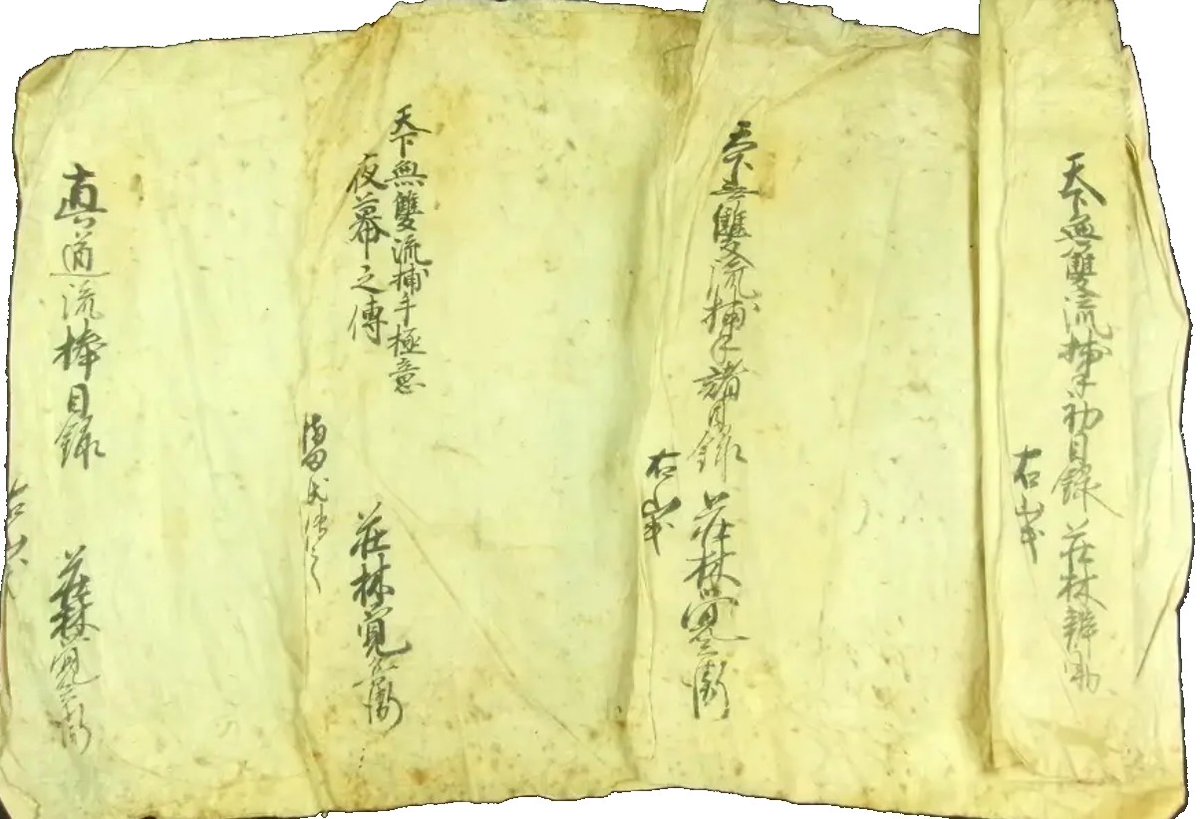 天下無雙流捕手初目録 荘林辨助
右
天下無雙流捕手諸目録 荘林覚兵衛
右
天下無雙流捕手極意
夜幕之傳 荘林覚兵衛
真道流棒目録 荘林覚兵衛